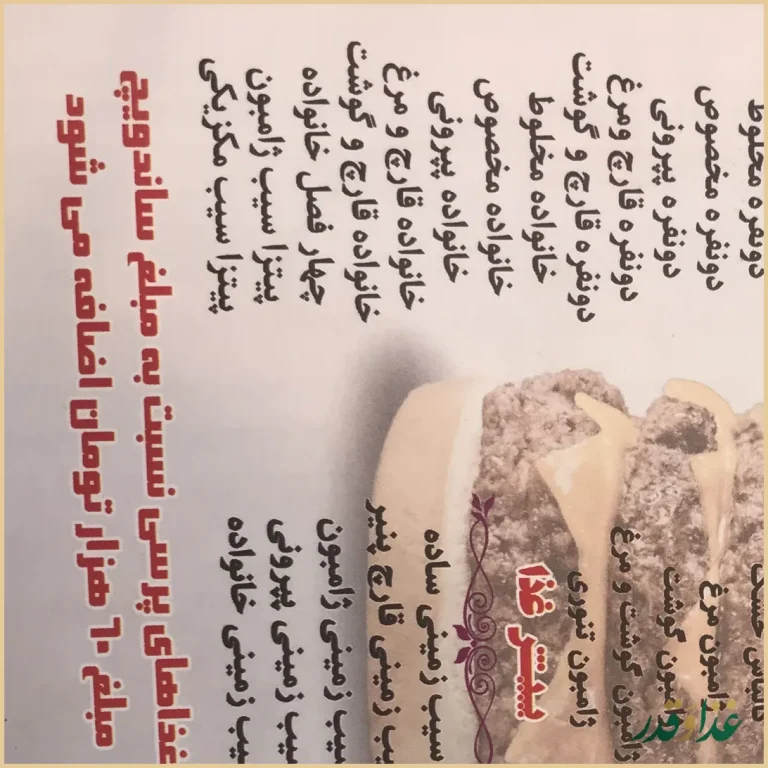 ژامبون مرغ
ژامبون گوشت
ژامبون گوشت و مرغ
ژامبون تنوری
پیش غذا
سیب زمینی ساده
یب زمینی قارچ پنیر
یب زمینی ژامبون
سیب زمینی پپرونی
یب زمینی خانواده
دونفره مخلوط
دونفره مخصوص
دونفره پپرونی
دونفره قارچ ومرغ
دونفره قارچ و گوشت
خانواده مخلوط
خانواده مخصوص
خانواده پپرونی
خانواده قارچ و مرغ
خانواده قارچ و گوشت
چهار فصل خانواده
پیتزا سیب ژامبون
پیتزا سیب مکزیکی
غذاهای پرسی نسبت به مبلغ ساندویچ
مبلغ ۶۰ هزار تومان اضافه می شود